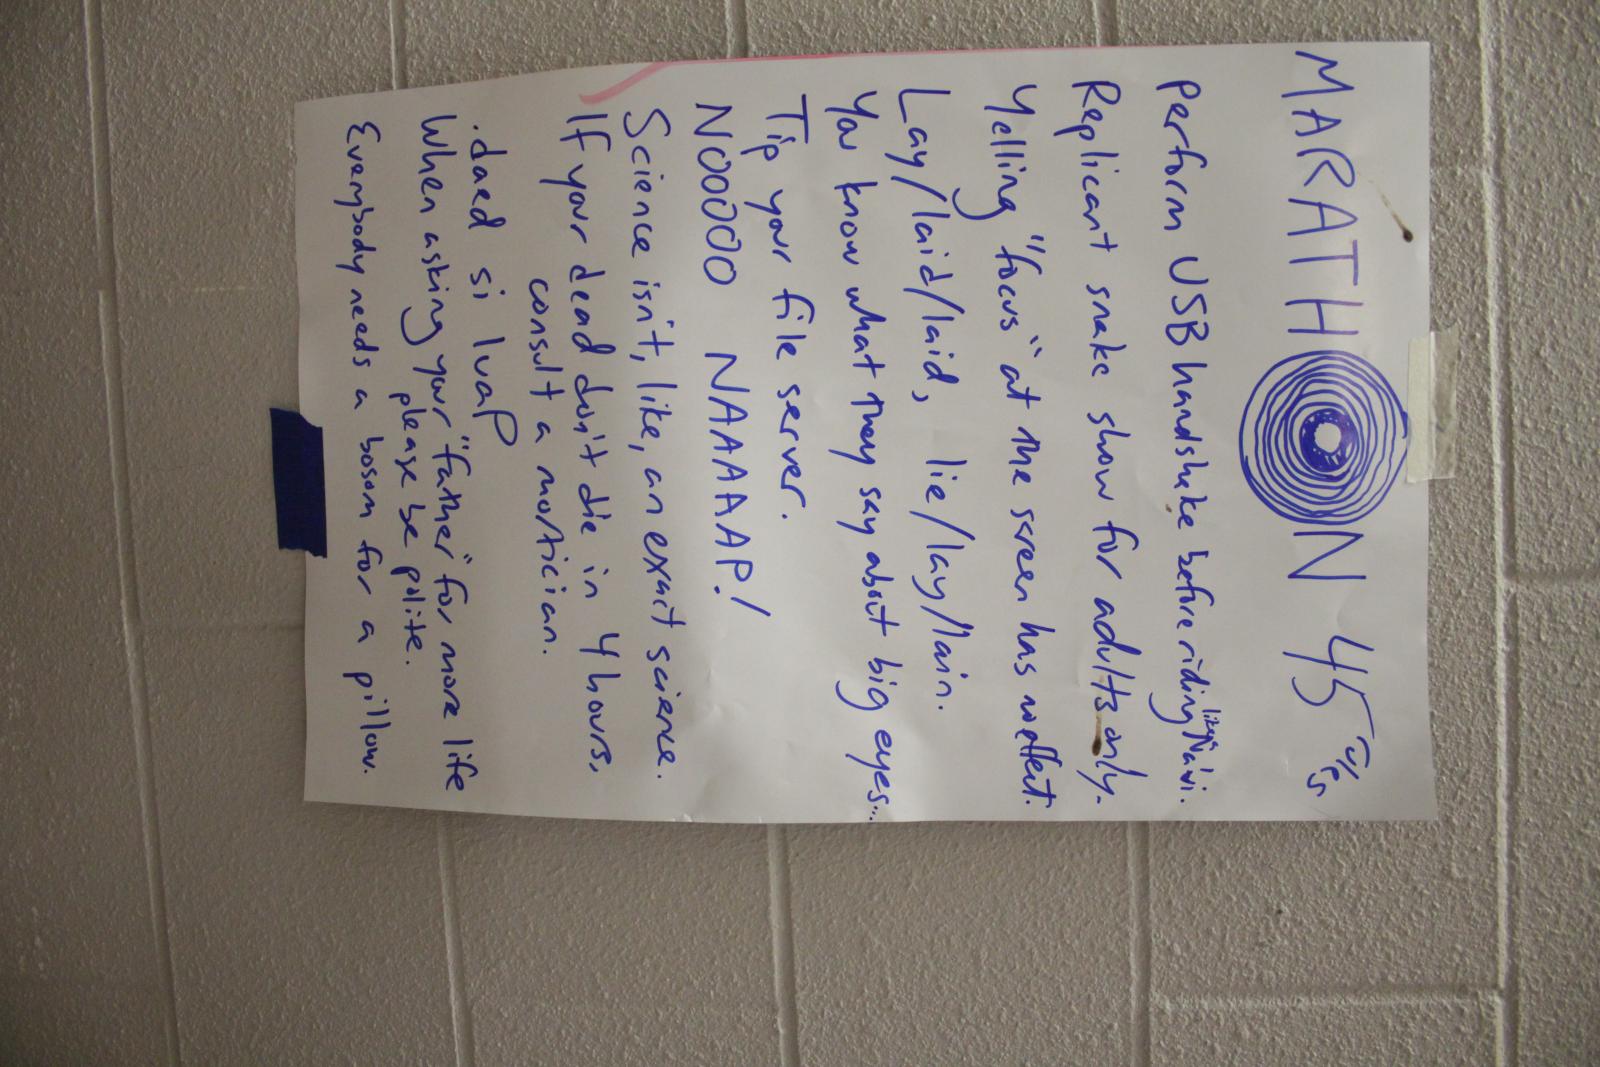 MARATHON 45
Perform USB handshake before riding like Na'vi.
Replicant snake show for adults only.
Yelling "focus" at the screen has no effect.
Lay/laid/laid, lie/lay/lain.
You know what they say about big eyes...
Tip your file server.
NOOOOO NAAAAAP!
Science isn't, like, an exact science.
If your dead don't die in 4 hours,
consult a mortician.
.daed si luaP
When asking your "father" for more life
please be polite.
Everybody needs a bosom for a pillow.